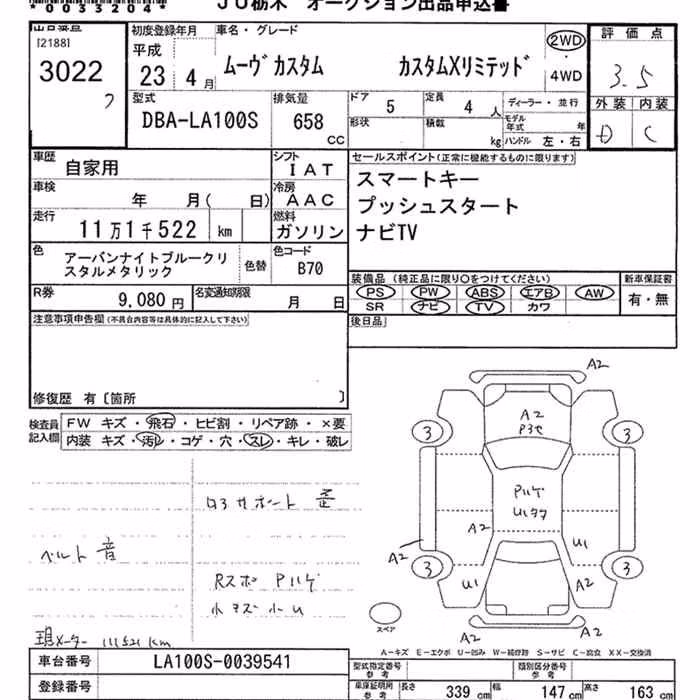 *0033204*
JU栃木 オークション出品申込書
出品番号
[2188]
3022
初度登録年月
平成
23 4月
車名・グレード
ムーヴカスタム カスタムXリミテッド
2WD
・
4WD
評価点
3.5
外装 内装
D C
型式
DBA-LA100S
排気量
658 CC
ドア 5
定員 4 人
形状
積載 kg
ディーラー・並行
モデル年式 年
ハンドル 左・右
車歴
自家用
シフト
IAT
車検
年 月( 日)
冷房
AAC
走行
11万1千522 km
燃料
ガソリン
セールスポイント(正常に機能するものに限ります)
スマートキー
プッシュスタート
ナビTV
色
アーバンナイトブルークリ
スタルメタリック
色替
色コード
B70
R券
9,080 円
名変通知期限
月 日
装備品(純正品に限り○をつけてください)
PS PW ABS エアB AW
SR ナビ TV カワ
新車保証書
有・無
後日品
注意事項申告欄(不具合内容等は具体的に記入して下さい)
修復歴 有〔箇所 〕
検査員
記入欄
FW キズ・飛石・ヒビ割・リペア跡・×要
内装 キズ・汚レ・コゲ・穴・スレ・キレ・破レ
ロアサポート 歪
ベルト 音
Rスポ Pハゲ
小キズ 小U
現メーター 111521km
A2
A2
3
3
Pハゲ
A2
A2
U1
3
3
U1
A2
A2
スペア
A-キズ E-エクボ U-凹み W-補修跡 S-サビ C-腐食 XX-交換済
車台番号
LA100S-0039541
登録番号
型式指定番号
参考
類別区分番号
参考
車庫証明用
参考
長さ 339 cm
幅 147 cm
高さ 163 cm